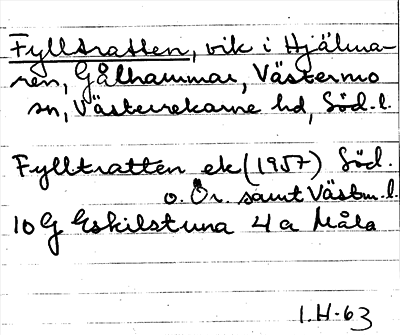 Fylltratten, vik i Hjälma-
ren, Gålhammar, Västermo
sn, Västerrekarne hd, Söd. l.
Fylltratten ek (1957) Söd.
o. Ör. samt Västm. l.
10 G Eskilstuna 4 a Måla
I.H-63